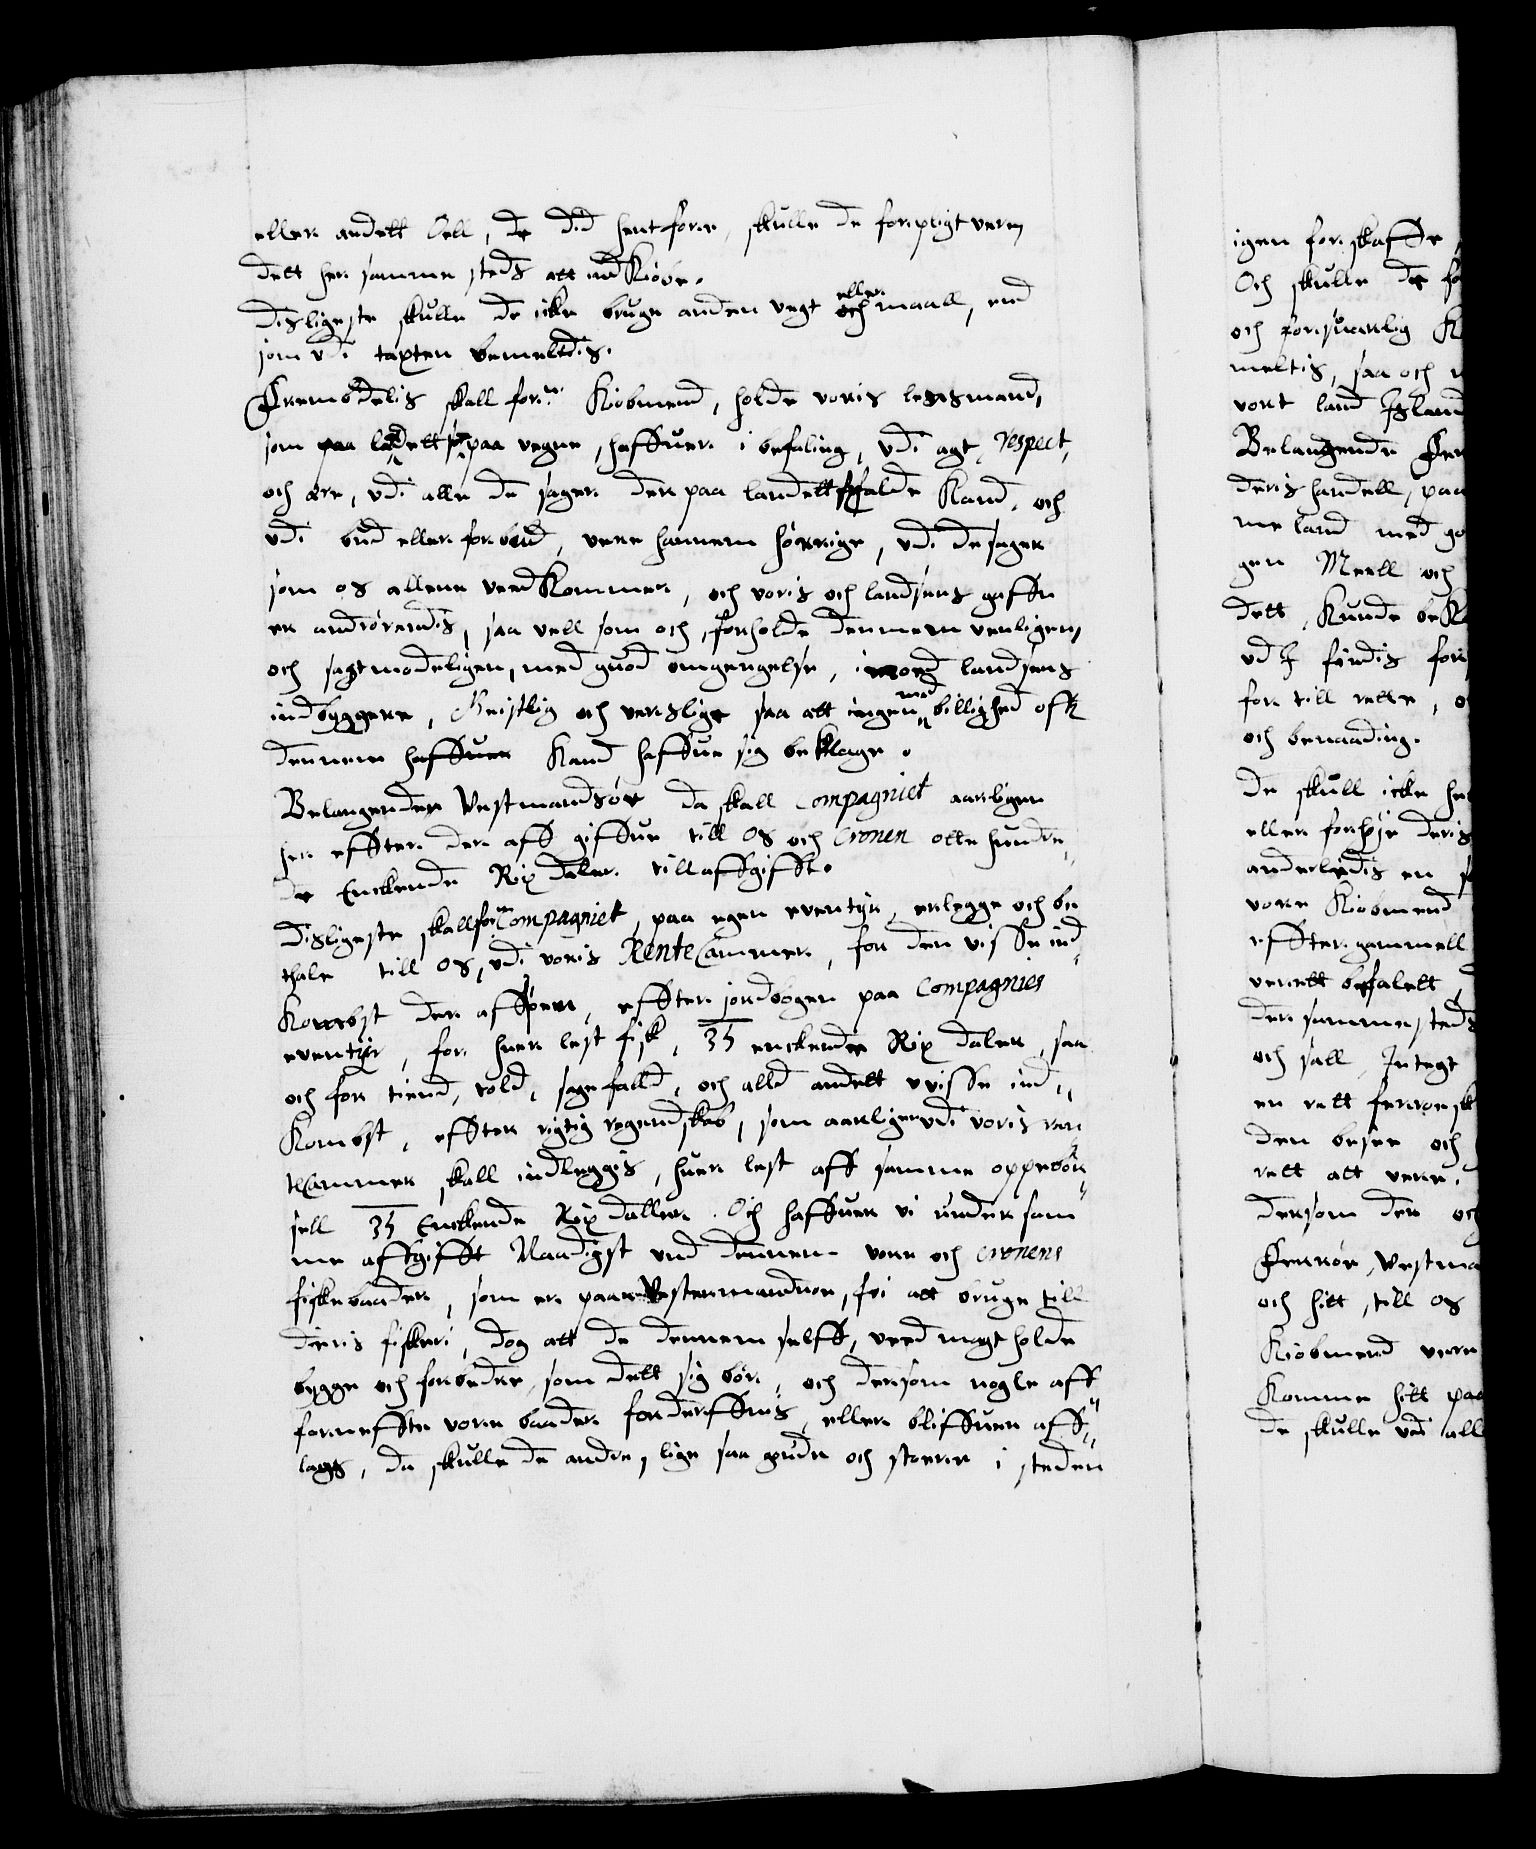 eller andett Oell, de did hentfører, skulle de forpligt vere,
dett her samme steds att indkiøbe.
Disligeste skulle de icke bruge anden vegt eller och maall, end
som vdi taxten bemeldis.
Fremdelis skall forne. Kiøbmend, holde voris lensmand,
som paa landetts paa vegne, haffuer i befaling, vdi agt, respect,
och ære, vdi alle de sager der paa landett falde Kand, och
vdi bud eller forbud, vere hannem hørrige, vdi de sager
som os allene vedKommer, och voris och landsens gaffn
er andrørendis, saa vell som och, forholde dennem venligen,
och sagtmodeligen, med guod omgengelse, imod landsens
indbyggere, Geistlig och verslige saa att ingen med billighed offr
dennem haffuer Kand haffue sig beklage.
Belangendes Vestmandsøe da skall Compagniet aarligen
her effter der aff giffue till Os och Cronen otte hundre„
de Enckende Rix daler till affgifft.
Disligeste skall forne Compagniet, paa egen eventyr, erlegge och be
thale till Os, vdi voris RenteCammer, for den visse ind„
Kombst der aff , effter jordbogen paa Compagnies
eventyr, for huer lest fisk, 35 enckende Rix daler, saa
och for tiend, told, sagefalld, och alld andett vvisse ind„
Kombst, effter rigtig regendskab, som aarligen vdi voris ren
teCammer skall indleggis, huer lest aff samme oppebør„
sell 35 Enckende Rix daller. Och haffuer vi under sam„
me affgifft Naadigst vnd dennem vore och Cronens
fiskebaader, som er paa Vestermandøe, fri att bruge till
deris fiskeri, dog att de dennem selff, ved magt holde
bygge och forbedre, som dett sig bør, och dersom nogle aff
forneffte vore baader forderffuis, eller bliffuer aff„
lagt, da skulle de andre, lige saa gode och stoere i steden
igen forskaffe,
Och skulle de fo
och forsuarlig K
meltis, saa och
vort land Jsland
Belangende Fer
deris handell, paa
me land med go
gen Meell och
dett, Kunde beK
vdj findis for
for till rette, o
och benaading.
De skull icke he
eller forhøje deris
anderledis en
vore Kiøbmend
effter gammell
verett befalett,
der samme steds
och sall. Integt
en rett ferroesk
den besee och
rett att vere.
Dersom der och
Ferrøe, Vestma
och hitt, till Os
Kiøbmend vere
Komme hitt paa
de skulle vdi all